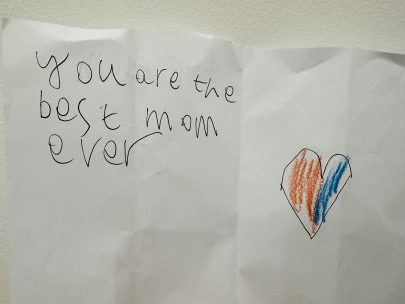 you are the
best mom
ever